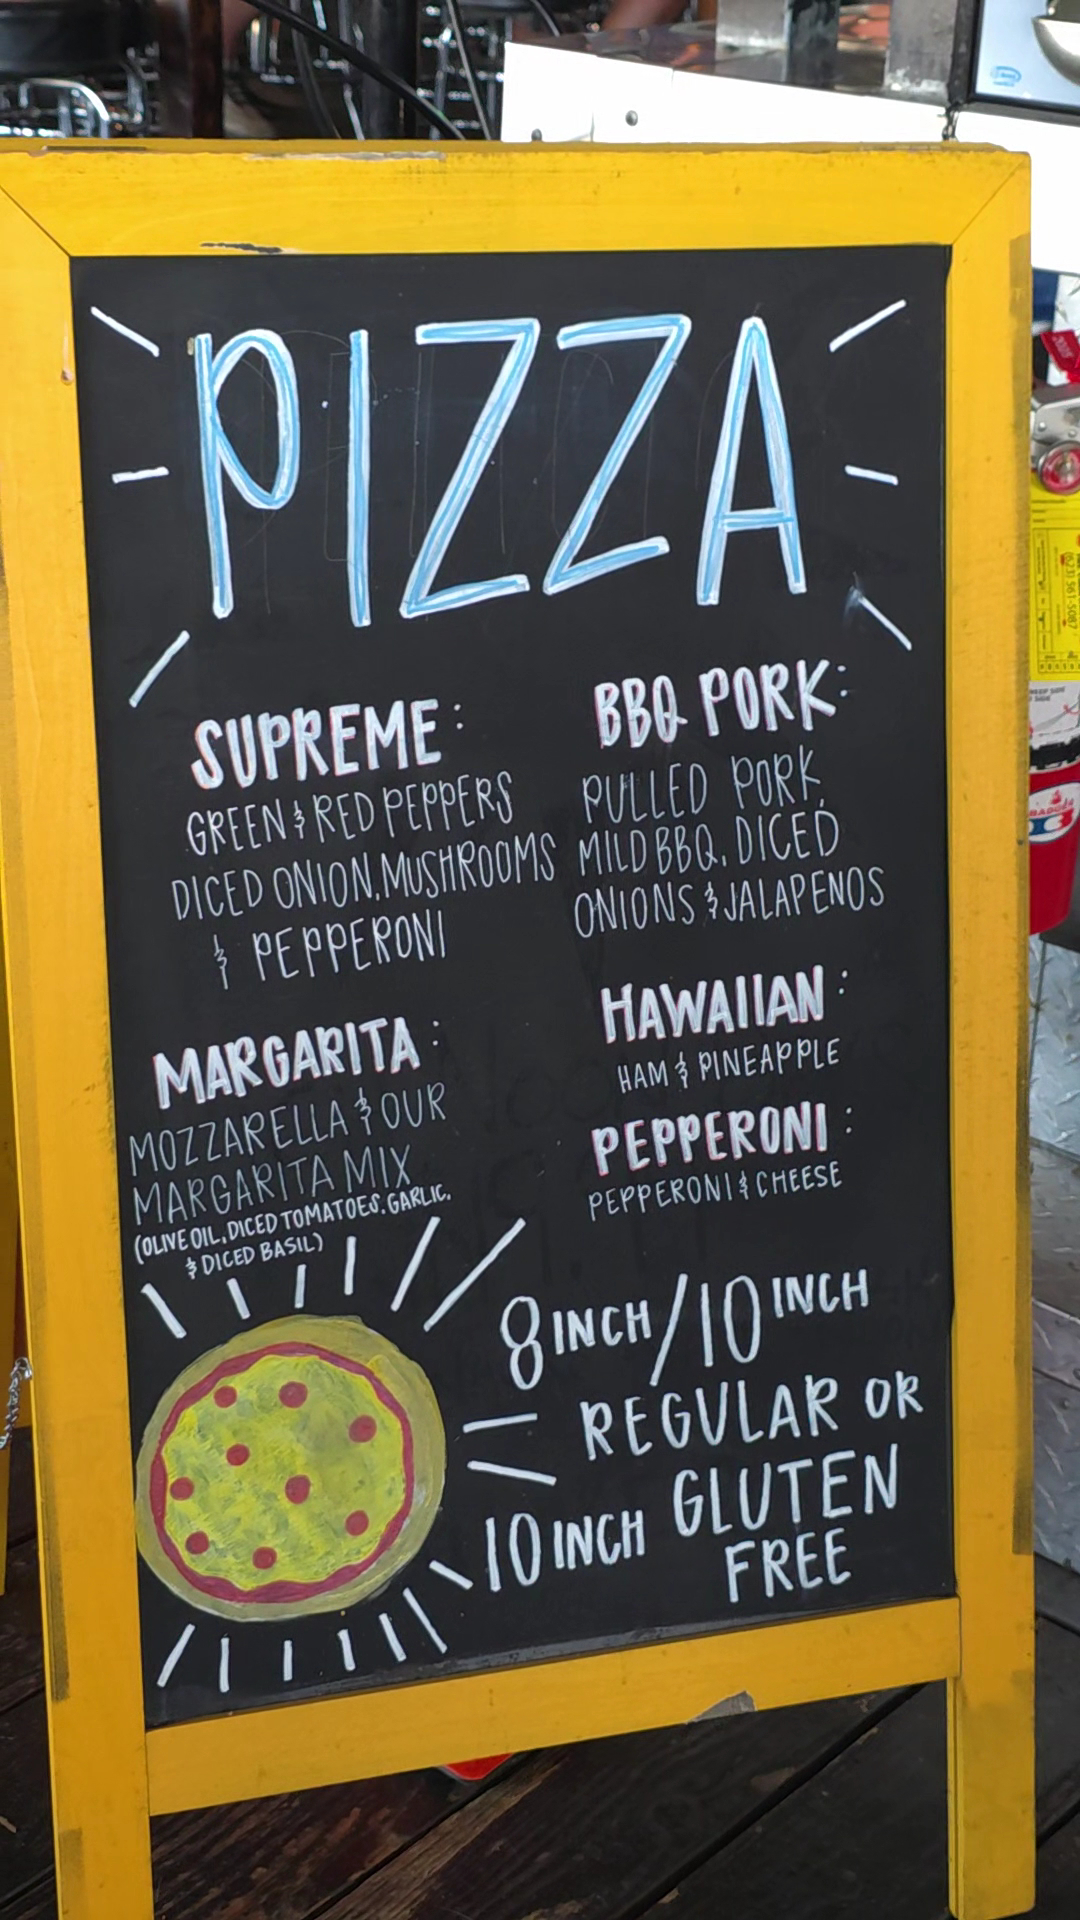 PIZZA
SUPREME:
GREEN & RED PEPPERS
DICED ONION, MUSHROOMS
& PEPPERONI
BBQ PORK:
PULLED PORK,
MILD BBQ, DICED
ONIONS & JALAPENOS
MARGARITA:
MOZZARELLA & OUR
MARGARITA MIX
(OLIVE OIL, DICED TOMATOES, GARLIC,
& DICED BASIL)
HAWAIIAN:
HAM & PINEAPPLE
PEPPERONI:
PEPPERONI & CHEESE
8 INCH/10 INCH
REGULAR OR
10 INCH GLUTEN
FREE